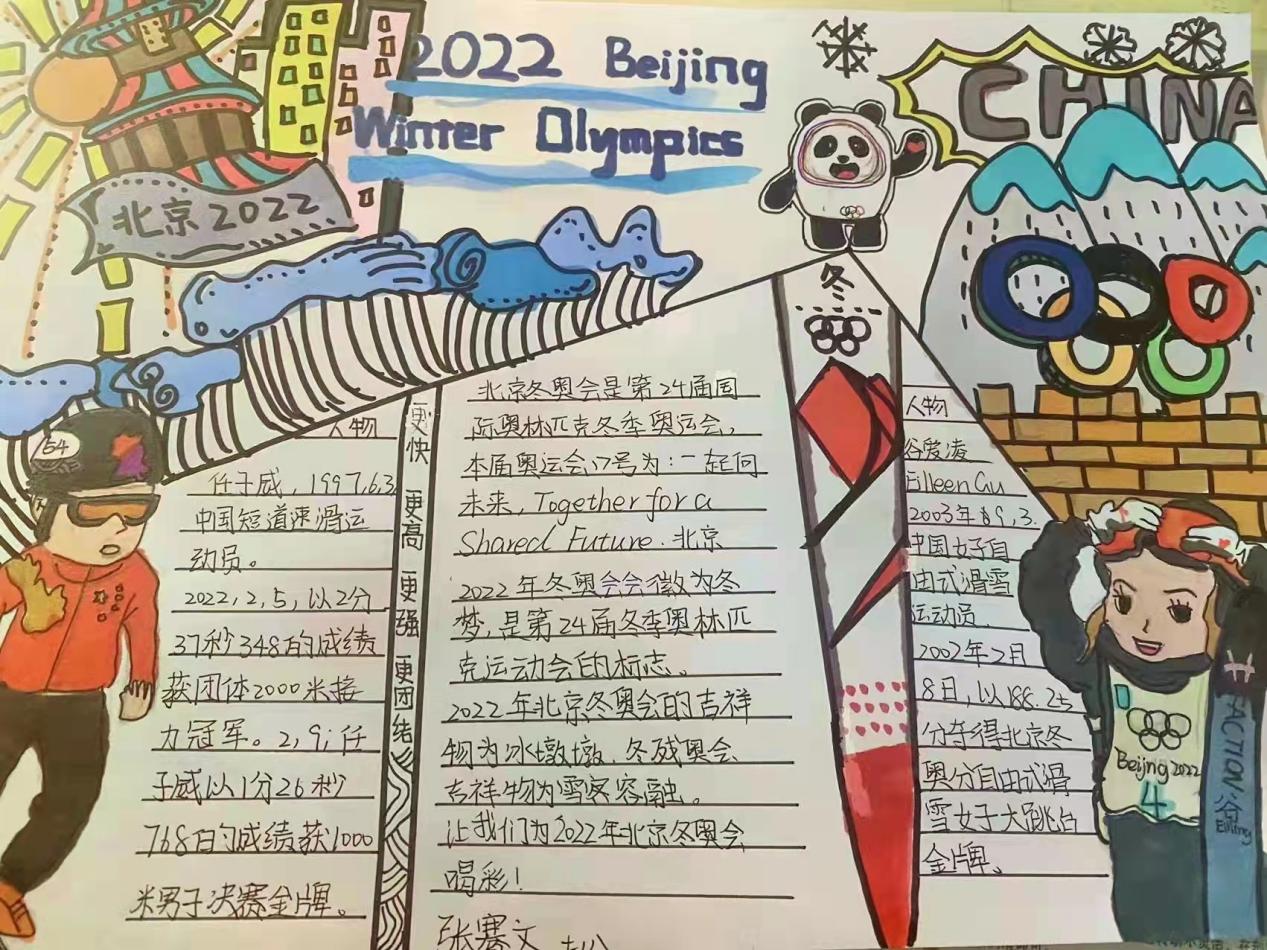 2022 Beijing
Winter Olympics
CHINA
北京2022
54
人物
任子威，1997.6.3
中国短道速滑运
动员。
2022,2,5,以2分
37秒348的成绩
获团体2000米接
力冠军。2,9;任
子威以1分26秒
768的成绩获1000
米男子决赛金牌。
更快 更高 更强 更团结
北京冬奥会是第24届国
际奥林匹克冬季奥运会，
本届奥运会口号为：一起向
未来，Together for a
Shared Future.北京
2022年冬奥会会徽为冬
梦，是第24届冬季奥林匹
克运动会的标志。
2022年北京冬奥会的吉祥
物为冰墩墩、冬残奥会
吉祥物为雪容容融。
让我们为2022年北京冬奥会
喝彩！
张赛文
冬
人物
谷爱凌
Eileen Gu
2003年 9,3.
中国女子自
由式滑雪
运动员.
2002年2月
8日,以188.25
分夺得北京冬
奥分自由式滑
雪女子大跳台
金牌。
Beijing 2022
4
FACTION
谷
Eiling